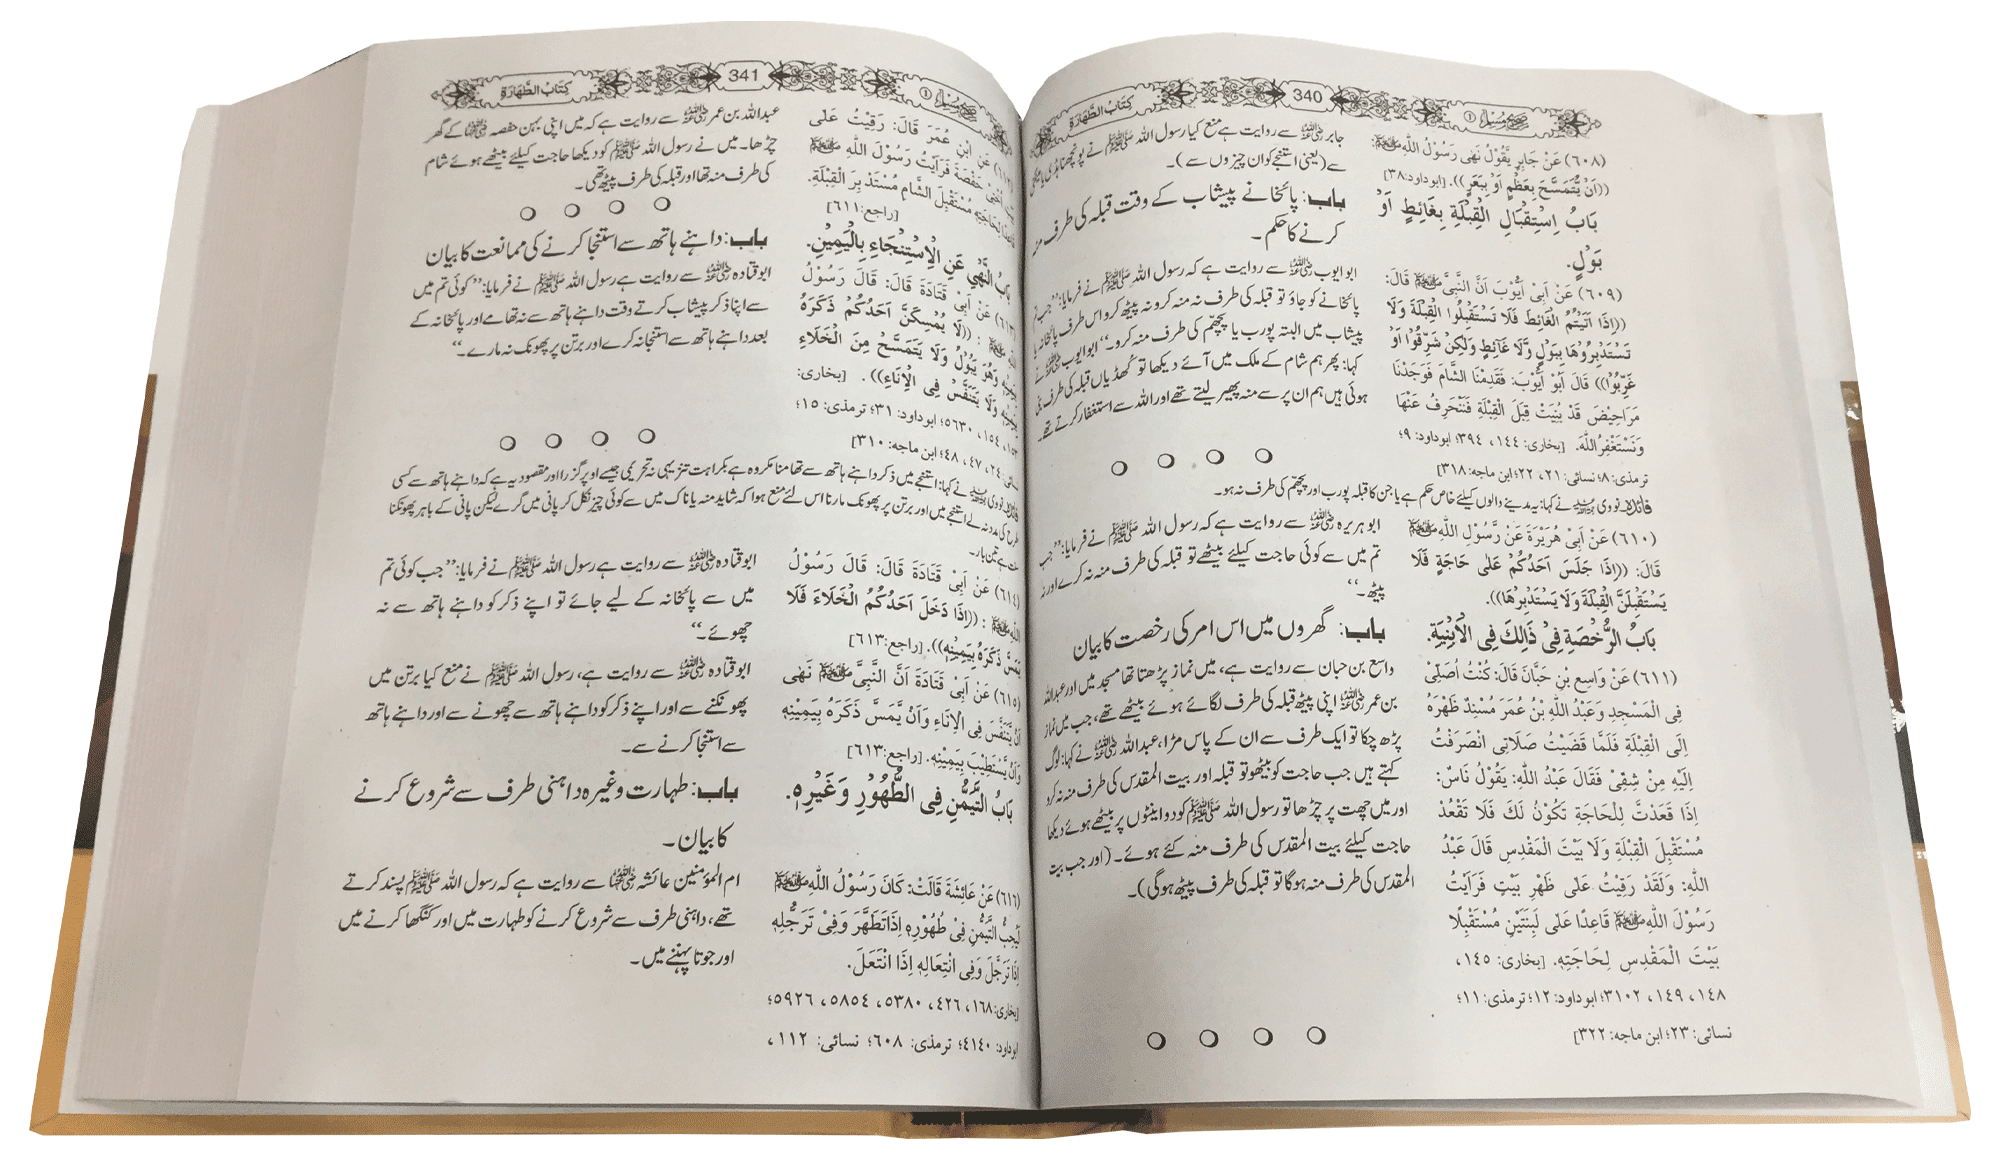 صحیح مسلم ①
340
کِتَابُ الطَّهَارَةِ
(٦٠٨) عَنْ جَابِرٍ يَّقُوْلُ نَهٰى رَسُوْلُ اللهِ ﷺ:
((اَنْ يُّتَمَسَّحَ بِعَظْمٍ اَوْ بِبَعَرٍ)). [ابوداود:٣٨]
بَابُ اِسْتِقْبَالِ الْقِبْلَةِ بِغَائِطٍ اَوْ
بَوْلٍ.
(٦٠٩) عَنْ اَبِیْ اَيُّوْبَ اَنَّ النَّبِیَّ ﷺ قَالَ:
((اِذَا اَتَيْتُمُ الْغَائِطَ فَلَا تَسْتَقْبِلُوا الْقِبْلَةَ وَلَا
تَسْتَدْبِرُوْهَا بِبَوْلٍ وَّلَا غَائِطٍ وَلٰكِنْ شَرِّقُوْا اَوْ
غَرِّبُوْا)) قَالَ اَبُوْ اَيُّوْبَ: فَقَدِمْنَا الشَّامَ فَوَجَدْنَا
مَرَاحِيْضَ قَدْ بُنِيَتْ قِبَلَ الْقِبْلَةِ فَنَنْحَرِفُ عَنْهَا
وَنَسْتَغْفِرُ اللهَ. [بخاری: ١٤٤، ٣٩٤؛ ابوداود: ٩؛
ترمذی: ٨؛ نسائی: ٢١، ٢٢؛ ابن ماجه: ٣١٨]
جابر رضی اللہ عنہ سے روایت ہے منع کیا رسول اللہ ﷺ نے پونچھنا ہڈی یا مینگنی
سے (یعنی استنجے کو ان چیزوں سے)۔
باب: پائخانے پیشاب کے وقت قبلہ کی طرف منہ
کرنے کا حکم۔
ابو ایوب رضی اللہ عنہ سے روایت ہے کہ رسول اللہ ﷺ نے فرمایا: ’’جب تم
پائخانے کو جاؤ تو قبلہ کی طرف نہ منہ کرو نہ پیٹھ کرو اس طرف پائخانہ یا
پیشاب میں البتہ پورب یا پچھم کی طرف منہ کرو۔‘‘ ابو ایوب رضی اللہ عنہ نے
کہا: پھر ہم شام کے ملک میں آئے دیکھا تو کھڈیاں قبلہ کی طرف بنی
ہوئی ہیں ہم ان پر سے منہ پھیر لیتے تھے اور اللہ سے استغفار کرتے تھے۔
فائدہ نووی رحمہ اللہ نے کہا: یہ مدینے والوں کیلئے خاص حکم ہے یا جن کا قبلہ پورب اور پچھم کی طرف نہ ہو۔
(٦١٠) عَنْ اَبِیْ هُرَيْرَةَ عَنْ رَّسُوْلِ اللهِ ﷺ
قَالَ: ((اِذَا جَلَسَ اَحَدُكُمْ عَلٰى حَاجَةٍ فَلَا
يَسْتَقْبِلَنَّ الْقِبْلَةَ وَلَا يَسْتَدْبِرْهَا)).
بَابُ الرُّخْصَةِ فِیْ ذَالِكَ فِی الْاَبْنِيَةِ.
(٦١١) عَنْ وَاسِعِ بْنِ حَبَّانَ قَالَ: كُنْتُ اُصَلِّیْ
فِی الْمَسْجِدِ وَعَبْدُ اللهِ بْنُ عُمَرَ مُسْنِدٌ ظَهْرَهُ
اِلَى الْقِبْلَةِ فَلَمَّا قَضَيْتُ صَلَاتِی انْصَرَفْتُ
اِلَيْهِ مِنْ شِقِّیْ فَقَالَ عَبْدُ اللهِ: يَقُوْلُ نَاسٌ:
اِذَا قَعَدْتَّ لِلْحَاجَةِ تَكُوْنُ لَكَ فَلَا تَقْعُدْ
مُسْتَقْبِلَ الْقِبْلَةِ وَلَا بَيْتَ الْمَقْدِسِ قَالَ عَبْدُ
اللهِ: وَلَقَدْ رَقِيْتُ عَلٰى ظَهْرِ بَيْتٍ فَرَاَيْتُ
رَسُوْلَ اللهِ ﷺ قَاعِدًا عَلٰى لَبِنَتَيْنِ مُسْتَقْبِلًا
بَيْتَ الْمَقْدِسِ لِحَاجَتِهٖ. [بخاری: ١٤٥،
١٤٨، ١٤٩، ٣١٠٢؛ ابوداود: ١٢؛ ترمذی: ١١؛
نسائی: ٢٣؛ ابن ماجه: ٣٢٢]
ابو ہریرہ رضی اللہ عنہ سے روایت ہے کہ رسول اللہ ﷺ نے فرمایا: ’’جب
تم میں سے کوئی حاجت کیلئے بیٹھے تو قبلہ کی طرف منہ نہ کرے اور نہ
پیٹھ۔‘‘
باب: گھروں میں اس امر کی رخصت کا بیان
واسع بن حبان سے روایت ہے، میں نماز پڑھتا تھا مسجد میں اور عبداللہ
بن عمر رضی اللہ عنہ اپنی پیٹھ قبلہ کی طرف لگائے ہوئے بیٹھے تھے، جب میں نماز
پڑھ چکا تو ایک طرف سے ان کے پاس مڑا، عبداللہ رضی اللہ عنہ نے کہا: لوگ
کہتے ہیں جب حاجت کو بیٹھو تو قبلہ اور بیت المقدس کی طرف منہ نہ کرو
اور میں چھت پر چڑھا تو رسول اللہ ﷺ کو دو اینٹوں پر بیٹھے ہوئے دیکھا
حاجت کیلئے بیت المقدس کی طرف منہ کئے ہوئے۔ (اور جب بیت
المقدس کی طرف منہ ہوگا تو قبلہ کی طرف پیٹھ ہوگی)۔
صحیح مسلم ①
341
کِتَابُ الطَّهَارَةِ
عَنِ ابْنِ عُمَرَ قَالَ: رَقِيْتُ عَلٰى
اُخْتِیْ حَفْصَةَ فَرَاَيْتُ رَسُوْلَ اللهِ ﷺ
قَاعِدًا لِحَاجَتِهٖ مُسْتَقْبِلَ الشَّامِ مُسْتَدْبِرَ الْقِبْلَةِ.
[راجع: ٦١١]
بَابُ النَّهْیِ عَنِ الْاِسْتِنْجَاءِ بِالْيَمِيْنِ.
(٦١٣) عَنْ اَبِیْ قَتَادَةَ قَالَ: قَالَ رَسُوْلُ
اللهِ ﷺ: ((لَا يُمْسِكَنَّ اَحَدُكُمْ ذَكَرَهُ
بِيَمِيْنِهٖ وَهُوَ يَبُوْلُ وَلَا يَتَمَسَّحْ مِنَ الْخَلَاءِ
بِيَمِيْنِهٖ وَلَا يَتَنَفَّسْ فِی الْاِنَاءِ)). [بخاری:
١٥٣، ١٥٤، ٥٦٣٠؛ ابوداود: ٣١؛ ترمذی: ١٥؛
نسائی: ٢٤، ٤٧، ٤٨؛ ابن ماجه: ٣١٠]
عبداللہ بن عمر رضی اللہ عنہ سے روایت ہے کہ میں اپنی بہن حفصہ رضی اللہ عنہا کے گھر
چڑھا۔ میں نے رسول اللہ ﷺ کو دیکھا حاجت کیلئے بیٹھے ہوئے شام
کی طرف منہ تھا اور قبلہ کی طرف پیٹھ تھی۔
باب: داہنے ہاتھ سے استنجا کرنے کی ممانعت کا بیان
ابو قتادہ رضی اللہ عنہ سے روایت ہے رسول اللہ ﷺ نے فرمایا: ’’کوئی تم میں
سے اپنا ذکر پیشاب کرتے وقت داہنے ہاتھ سے نہ تھامے اور پائخانہ کے
بعد داہنے ہاتھ سے استنجا نہ کرے اور برتن پر پھونک نہ مارے۔‘‘
فائدہ نووی رحمہ اللہ نے کہا: استنجے میں ذکر داہنے ہاتھ سے تھامنا مکروہ ہے بکراہت تنزیہی نہ تحریمی جیسے اوپر گزرا اور مقصود یہ ہے کہ داہنے ہاتھ سے کسی
طرح کی مدد نہ لے استنجے میں اور برتن پر پھونک مارنا اس لئے منع ہوا کہ شاید منہ یا ناک میں سے کوئی چیز نکل کر پانی میں گرے لیکن پانی کے باہر پھونکنا
ہے تین بار۔
(٦١٤) عَنْ اَبِیْ قَتَادَةَ قَالَ: قَالَ رَسُوْلُ
اللهِ ﷺ: ((اِذَا دَخَلَ اَحَدُكُمُ الْخَلَاءَ فَلَا
يَمَسَّ ذَكَرَهُ بِيَمِيْنِهٖ)). [راجع: ٦١٣]
(٦١٥) عَنْ اَبِیْ قَتَادَةَ اَنَّ النَّبِیَّ ﷺ نَهٰى
اَنْ يَّتَنَفَّسَ فِی الْاِنَاءِ وَاَنْ يَّمَسَّ ذَكَرَهُ بِيَمِيْنِهٖ
وَاَنْ يَّسْتَطِيْبَ بِيَمِيْنِهٖ. [راجع: ٦١٣]
بَابُ التَّيَمُّنِ فِی الطُّهُوْرِ وَغَيْرِهٖ.
(٦١٦) عَنْ عَائِشَةَ قَالَتْ: كَانَ رَسُوْلُ اللهِ ﷺ
لَيُحِبُّ التَّيَمُّنَ فِیْ طُهُوْرِهٖ اِذَا تَطَهَّرَ وَفِیْ تَرَجُّلِهٖ
اِذَا تَرَجَّلَ وَفِی انْتِعَالِهٖ اِذَا انْتَعَلَ.
[بخاری: ١٦٨، ٤٢٦، ٥٣٨٠، ٥٨٥٤، ٥٩٢٦؛
ابوداود: ٤١٤٠؛ ترمذی: ٦٠٨؛ نسائی: ١١٢،
ابو قتادہ رضی اللہ عنہ سے روایت ہے رسول اللہ ﷺ نے فرمایا: ’’جب کوئی تم
میں سے پائخانہ کے لیے جائے تو اپنے ذکر کو داہنے ہاتھ سے نہ
چھوئے۔‘‘
ابو قتادہ رضی اللہ عنہ سے روایت ہے، رسول اللہ ﷺ نے منع کیا برتن میں
پھونکنے سے اور اپنے ذکر کو داہنے ہاتھ سے چھونے سے اور داہنے ہاتھ
سے استنجا کرنے سے۔
باب: طہارت وغیرہ داہنی طرف سے شروع کرنے
کا بیان۔
ام المؤمنین عائشہ رضی اللہ عنہا سے روایت ہے کہ رسول اللہ ﷺ پسند کرتے
تھے، داہنی طرف سے شروع کرنے کو طہارت میں اور کنگھا کرنے میں
اور جوتا پہننے میں۔